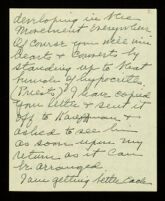 developing in the
Movement everywhere
Of course you will win
Hearts & Converts by
standing up to that
bunch of hypocrites
(Priest,) I have copied
your letter & sent it
off to & 
asked to see him
as soon upon my
return as it can
be arranged.
I am getting letter